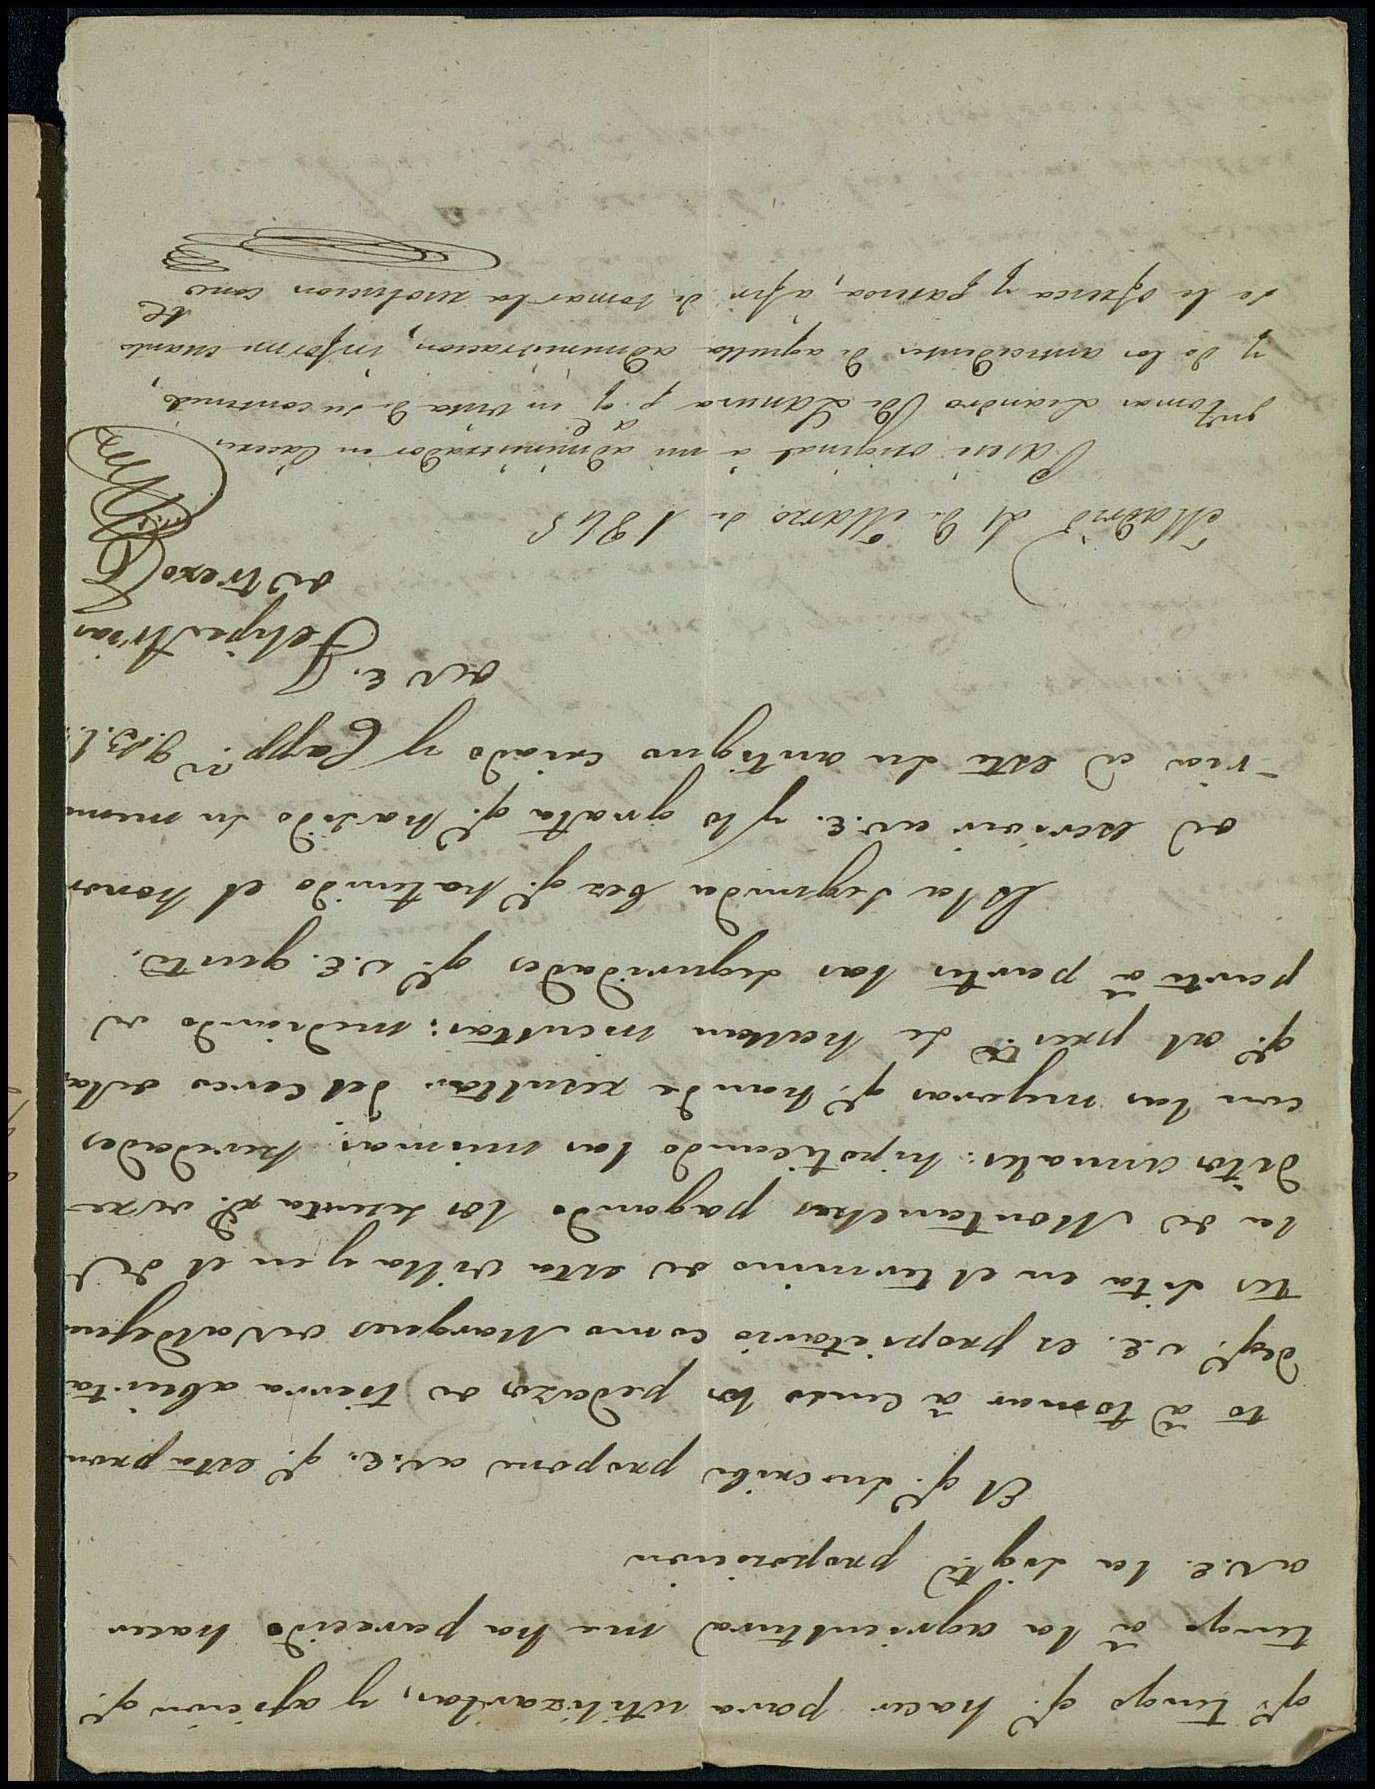 qe. tengo qe. hacer para utilizarlas, y aficion qe.
tengo á la agricultura me ha parecido hacer
a V.E. la sigte. proposicion
El qe. suscribe propone a V.E. qe. está pron
to á tomar á censo los pedazos de tierra abierta
de qe. V.E. es propietario como Margenes de Valdejuen
tes sita en el termino de esta villa y en el de
la de Montanches pagando los renta
ditos anuales: hipotecando las mismas heredades
con las mejoras qe. han de resultar del cerco de las
qe. al preste. se hallan incultas: mediando de
parte á parte las seguridades qe. V.E. guste.
Es la segunda vez qe. ha tenido el honor
de escrivir a V.E. y lo grata qe. ha sido su memo
ria á este su antiguo criado y Capp.n q.B.l.
a V.E.
Felipe Arias
de Trexo
Madrid 21 de Marzo de 1845
Pase original á mi administrador en Cáceres
Leandro de Lanusa p.a qe. en vista de su contenido,
y de los antecedentes de aquella administracion, informe cuanto
se le ofrezca y parezca, á fin de tomar la resolucion conv
te